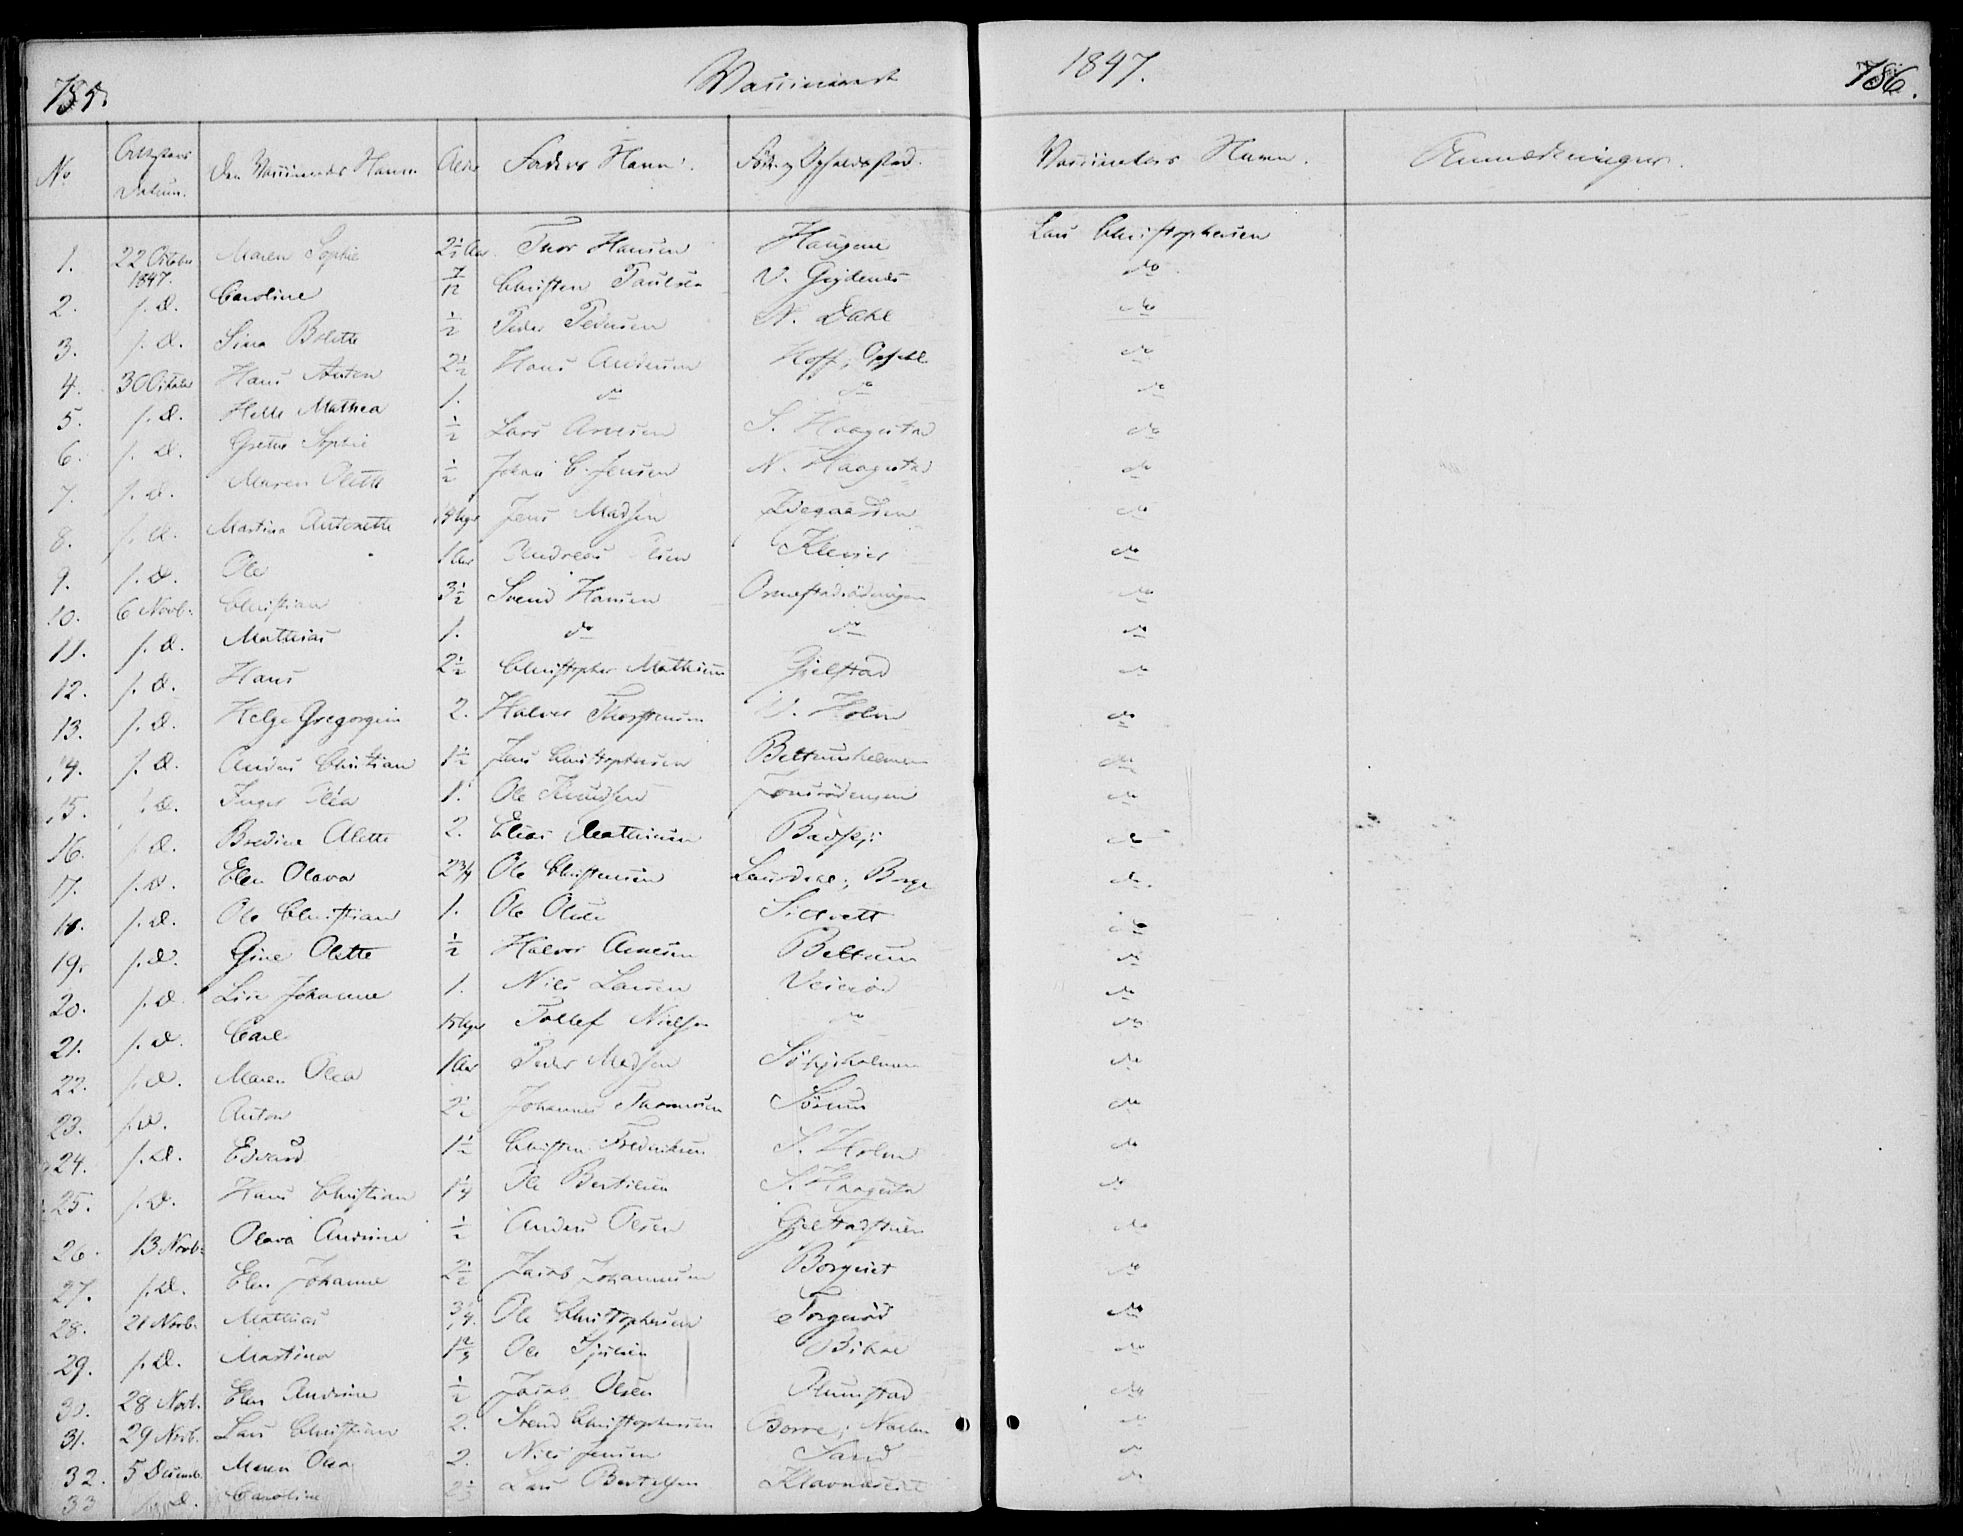 785. Vaccinerede 1847. 786.
No Attestens Datum. Den Vaccineredes Navn Alder Faders Navn. Föde og Opholdssted. Vaccinators Navn. Anmærkninger.
1. 22 October 1847. Maren Sophie 2½ Aar. Thor Hansen Haugene Lars Christophersen
2. s. D. Caroline 7/12 Christen Paulsen do
3. s. D. Sina Bolette ½ Peder Pedersen N. Dahl do
4. 30 October Hans Anton 2½ Hans Andersen Hoff, Opsahl do
5. s. D. Helle Mathea 1. do do do
6. s. D. Grethe Sophie ½ Lars Arnesen S. Haagestad do
7. s. D. Maren Olette ½ Johan C. Jensen N. Haagestad do
8. s. D. Martina Antonette 14 Uger Jens Madsen do
9. s. D. Ole 1 Aar Andreas Olsen Klever do
10. 6 Novb. Christian 3½ Svend Hansen do
11. s. D. Mathias 1. do do do
12. s. D. Hans 2½ Christopher Mathisen Gjelstad do
13. s. D. Helge Gregorgine 2. Halvor Thorstensen V. Holm do
14. s. D. Anders Christian 1½ Jens Christophersen Beltumsholmen do
15. s. D. Inger Oléa 1. Ole Knudsen do
16. s. D. Bredine Alette 2. Elias Mathisen do
17. s. D. Elen Olava 2¾ Ole Christensen Laurdal, Borge do
18. s. D. Ole Christian 1. Ole Olsen do
19. s. D. Gine Olette ½ Halvor Arnesen Beltum do
20. s. D. Lise Johanne 1. Niels Larsen do
21. s. D. Carl 15 Uger Tollef Nielsen do do
22. s. D. Maren Olea 1 Aar Peder Madsen do
23. s. D. Anton 2½ Johannes Thomesen Sörum do
24. s. D. Edvard 1½ Christen Fredriksen S. Holm do
25. s. D. Hans Christian 1¼ Ole Bertilsen S. Haagestad do
26. 13 Novb. Olava Andrine ½ Anders Olsen Gjelstadstuen do
27. s. D. Elen Johanne 2½ Jacob Johannesen do
28. 21 Novb. Mathias ¾. Ole Christophersen do
29. s. D. Martina Ole do
30. 28 Novb. Elen Andrine ½ Jacob Olsen do
31. 29 Novb. Lars Christian 2. Svend Christophersen Borre, do
32. 5 Decemb. Maren Olea 2. Niels Jensen Sand do
33 s. D. Caroline 2½ Lars Bertelsen do